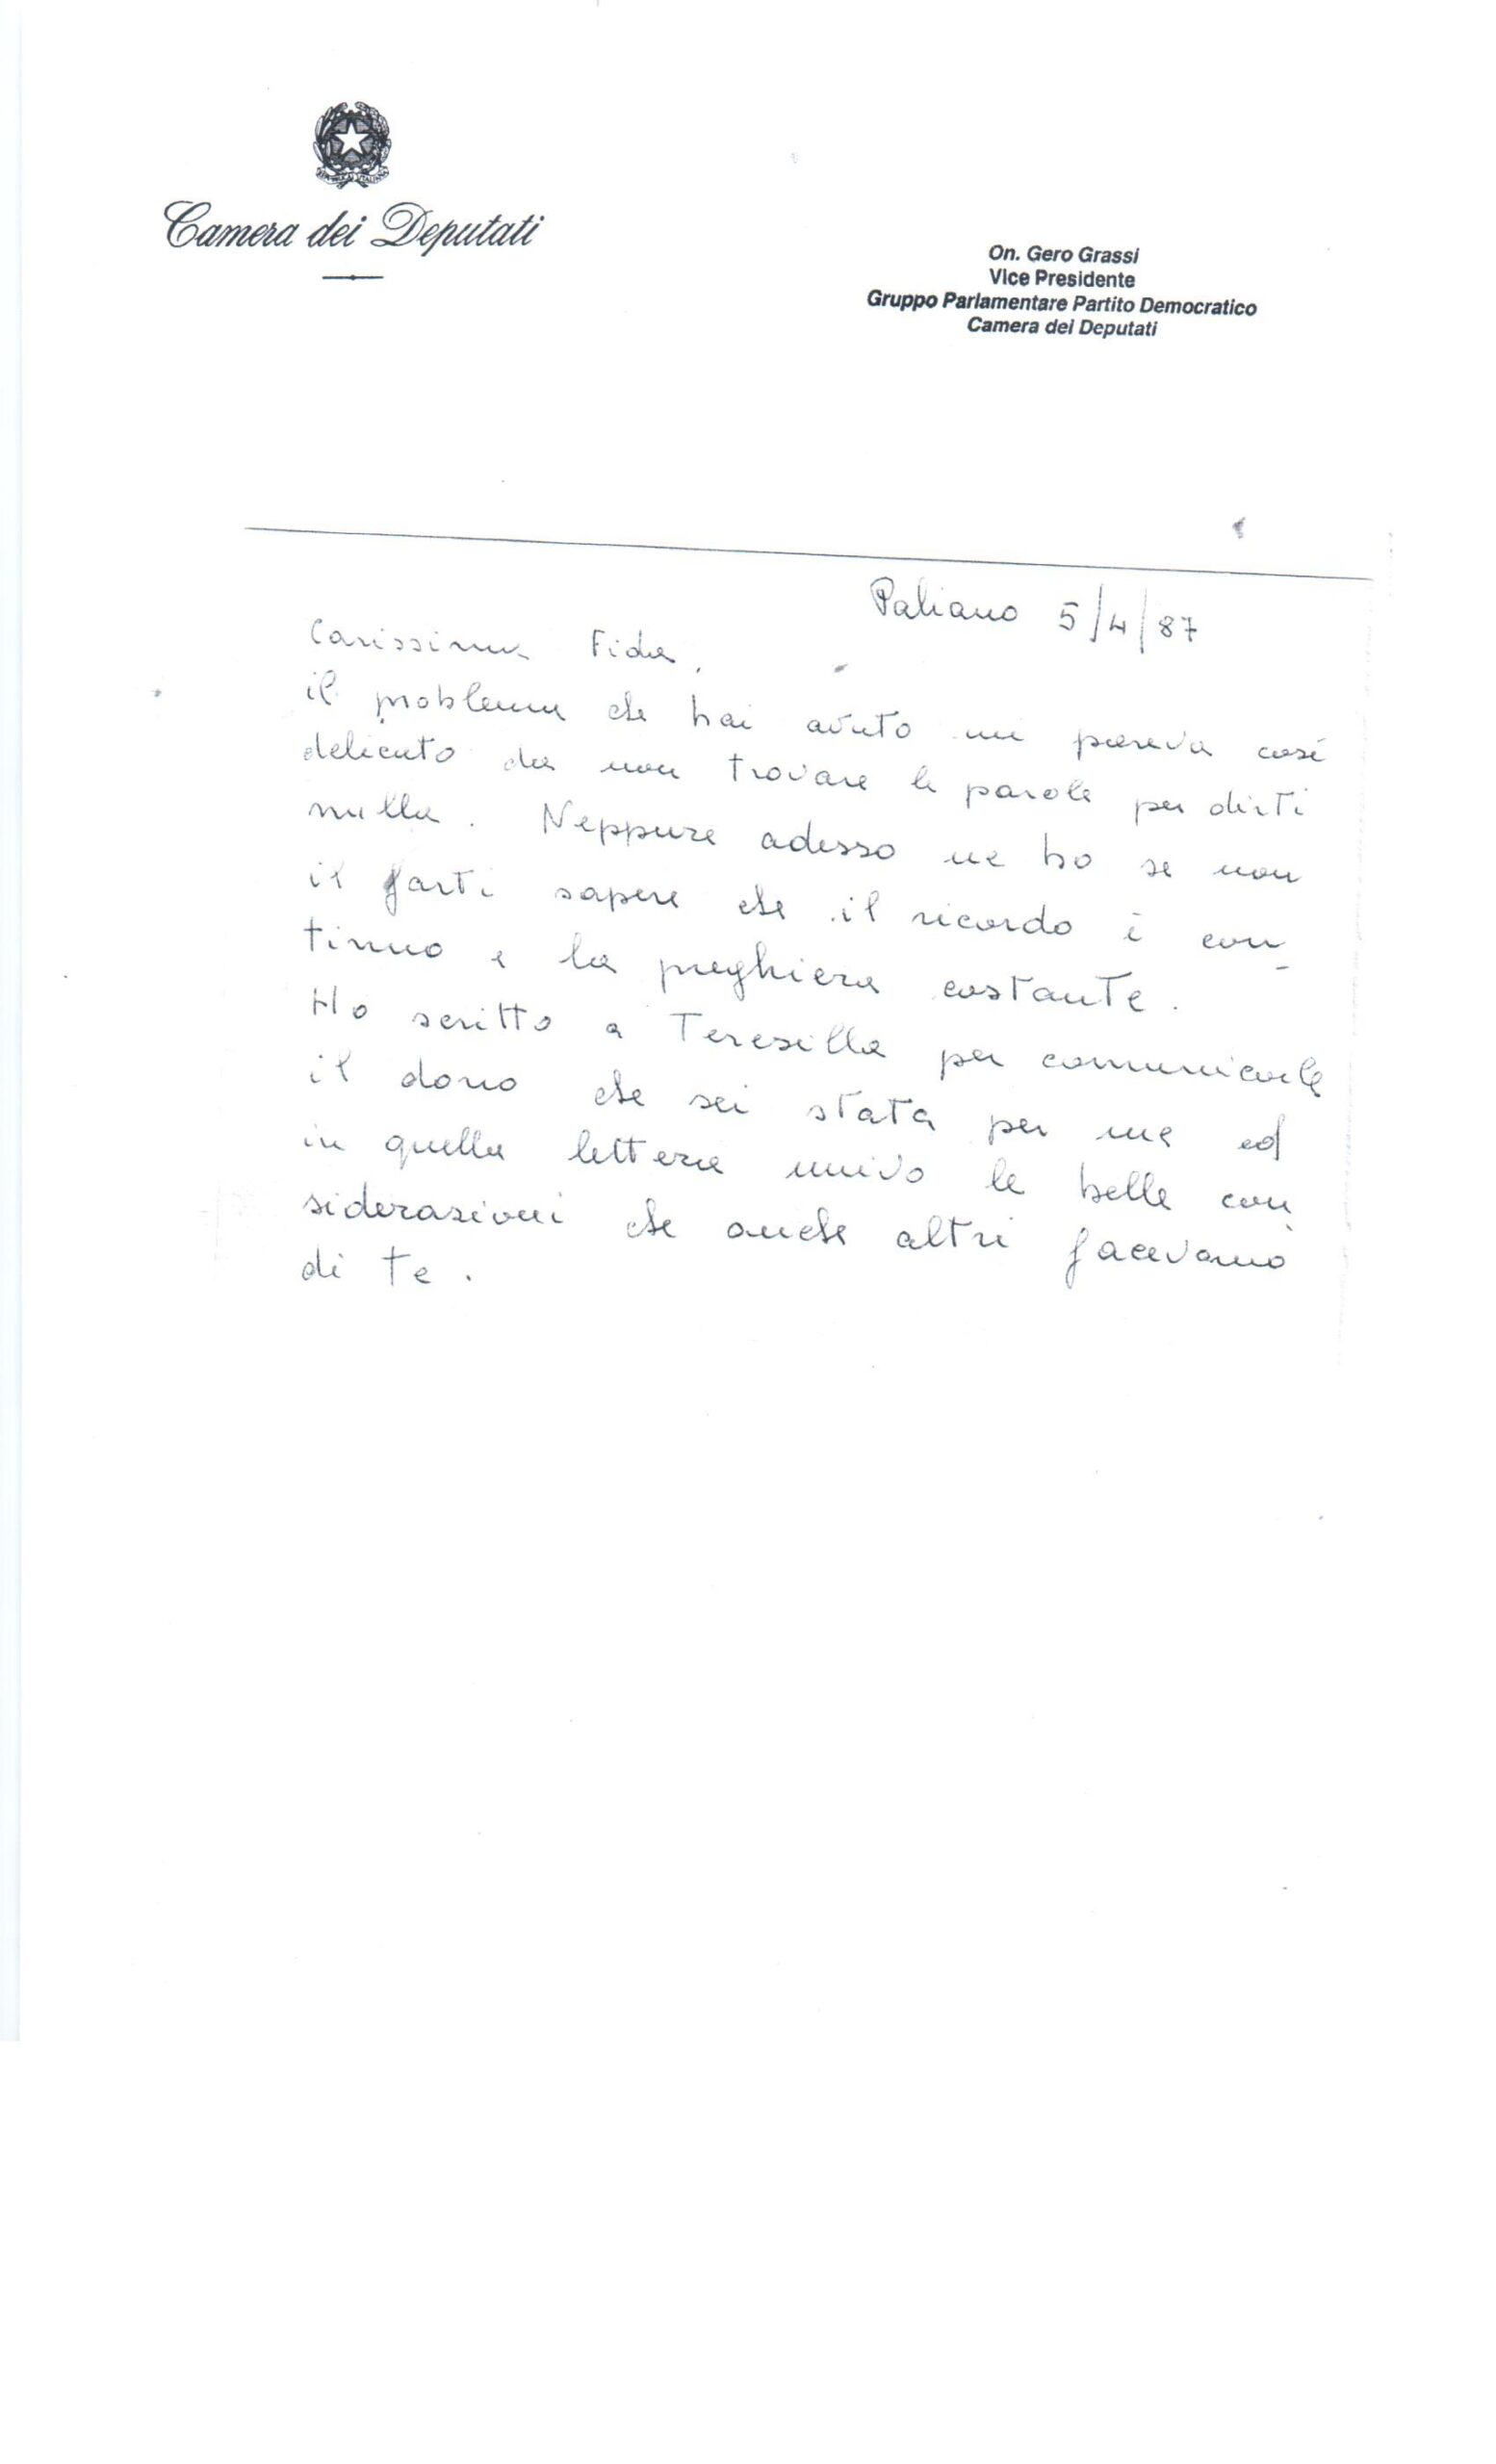 Camera dei Deputati
On. Gero Grassi
Vice Presidente
Gruppo Parlamentare Partito Democratico
Camera dei Deputati
Paliano 5/4/87
Carissima Fida,
il problema che hai avuto mi pareva così
delicato da non trovare le parole per dirti
nulla. Neppure adesso ne ho se non
il farti sapere che il ricordo è con_
tinuo e la preghiera costante.
Ho scritto a Teresilla per comunicarle
il dono che sei stata per me ed
in quella lettera univo le belle con
siderazioni che anche altri facevano
di te.